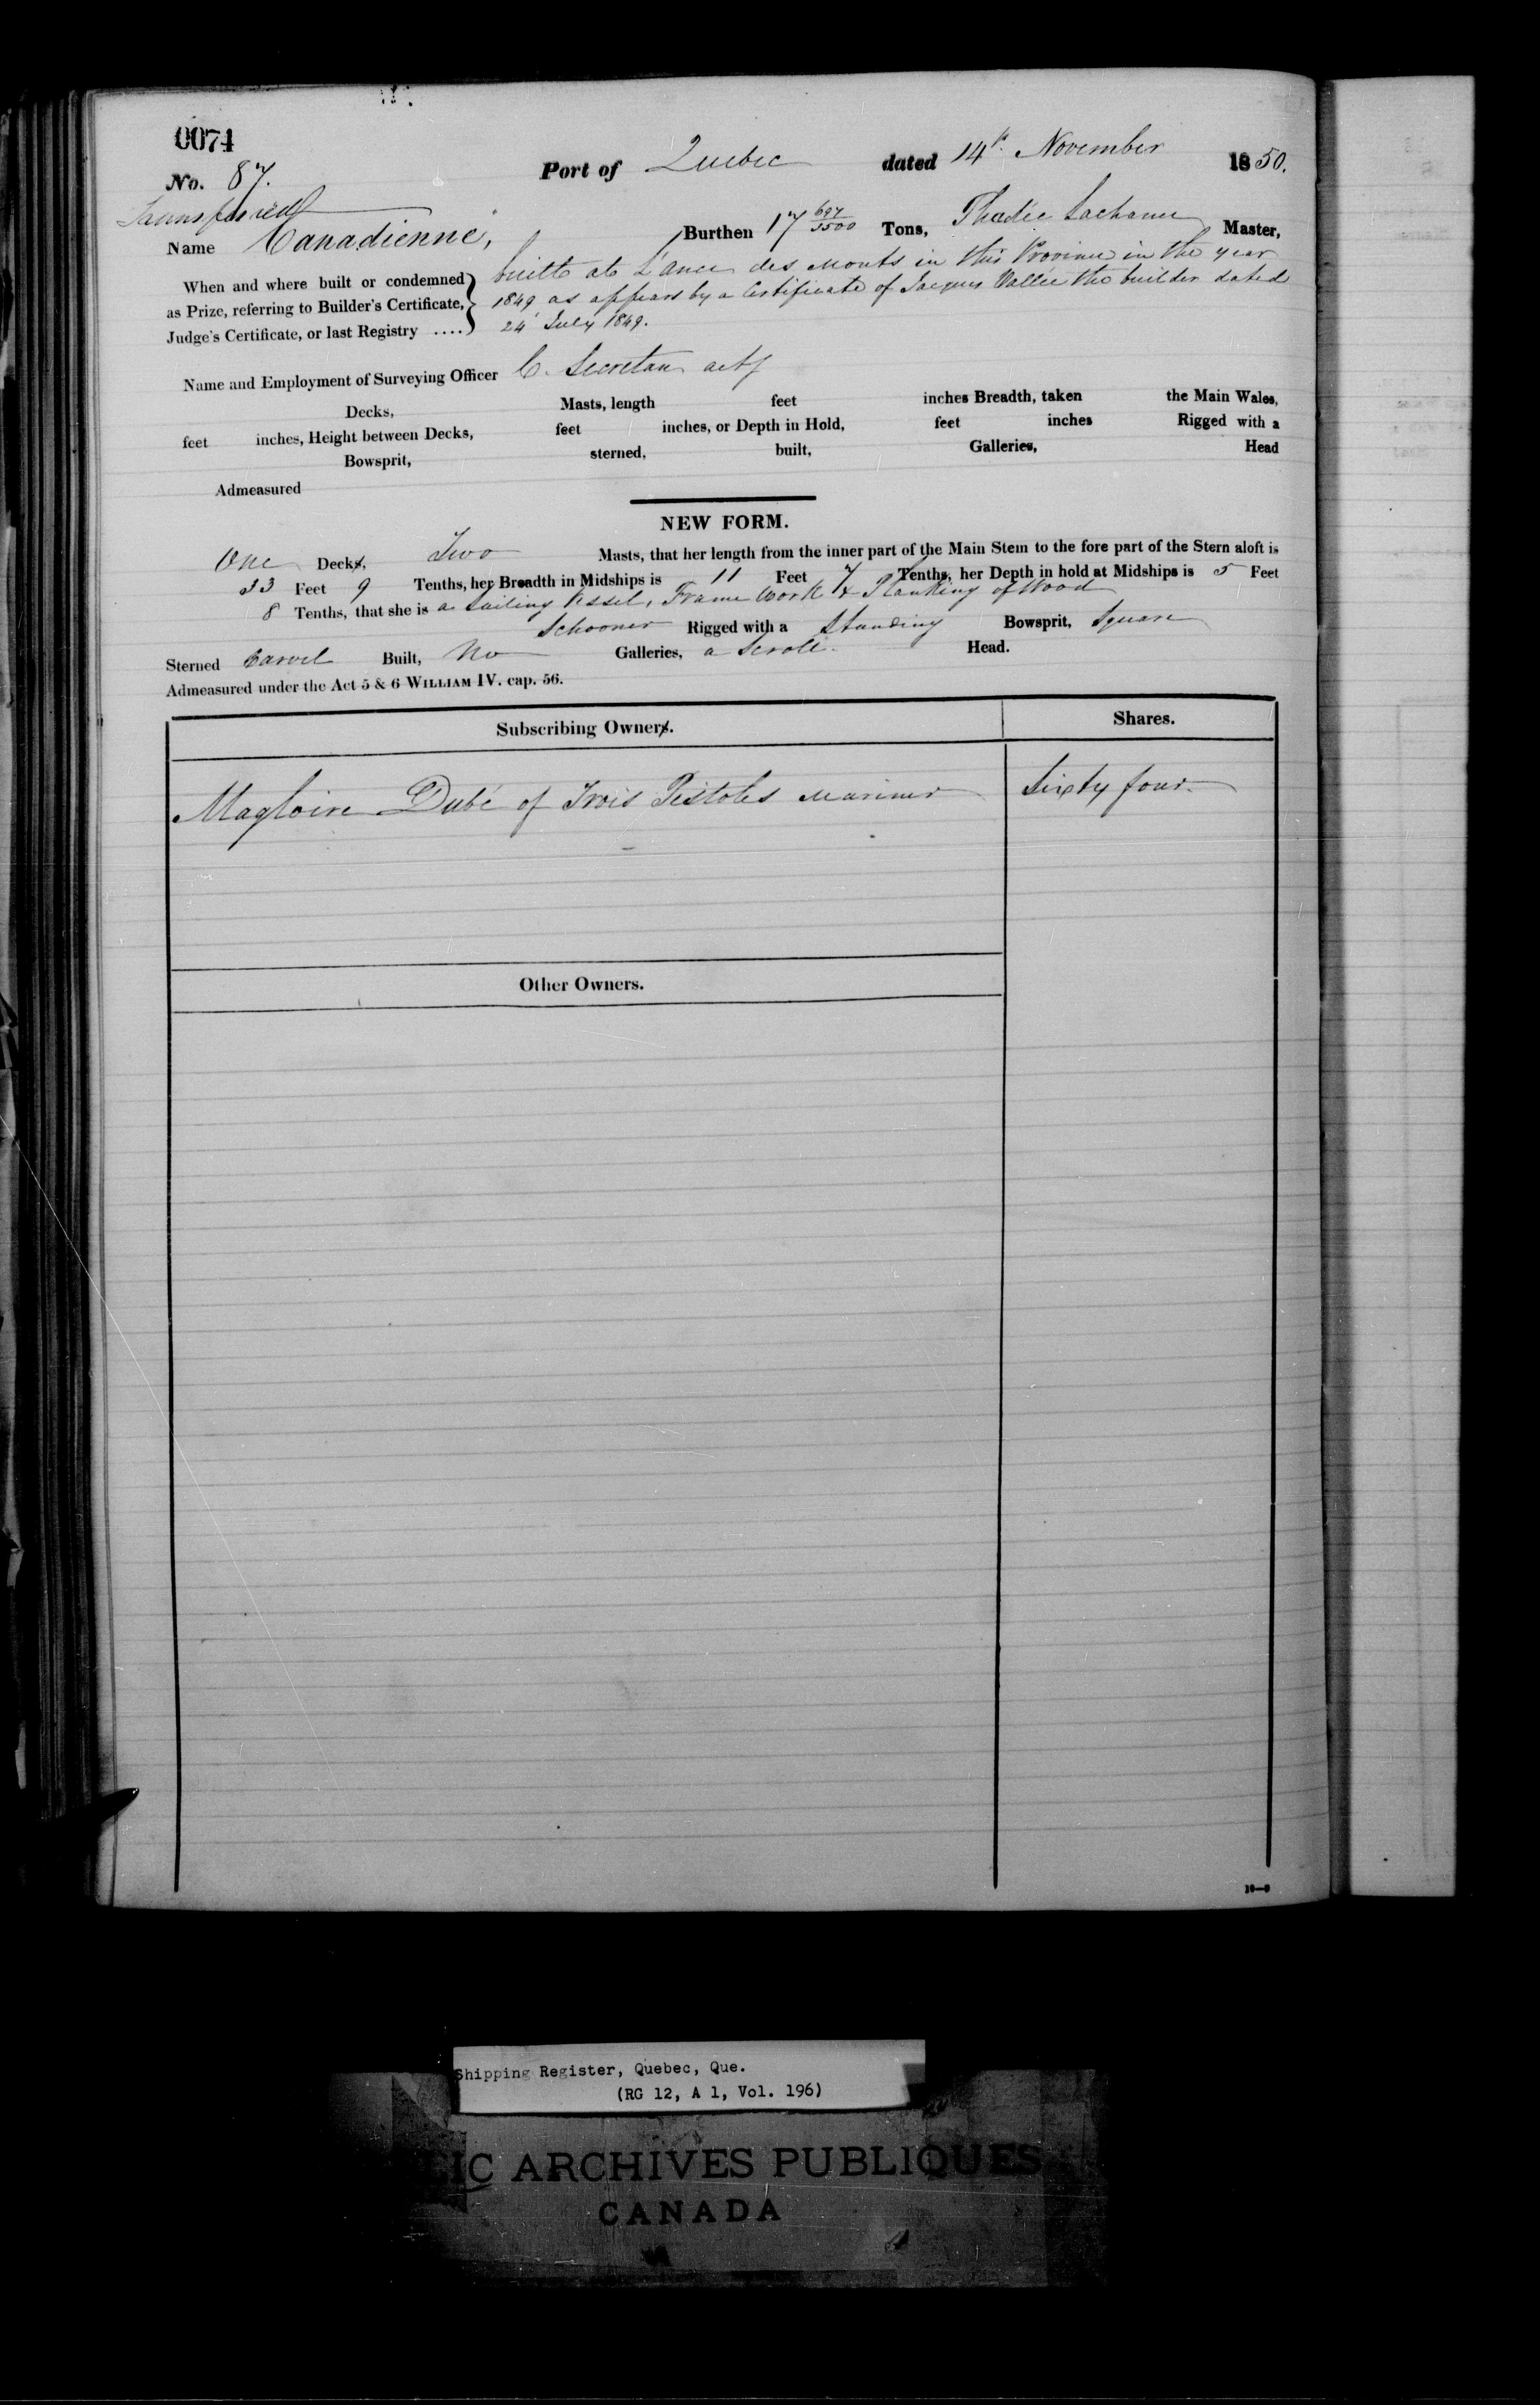 0074
No. 87. Port of Quebec dated 14th November 1850.
Transferred
Name Canadienne, Burthen 17 697/3500 Tons, Thadée Lachance Master,
When and where built or condemned as Prize, referring to Builder's Certificate, Judge's Certificate, or last Registry ....
built at L'Ance des Monts in this Province in the year
1849 as appears by a Certificate of Jacques Vallée the builder dated
24 July 1849.
Name and Employment of Surveying Officer C. Secretan actg
Decks, Masts, length feet inches Breadth, taken the Main Wales,
feet inches, Height between Decks, feet inches, or Depth in Hold, feet inches Rigged with a
Bowsprit, sterned, built, Galleries, Head
Admeasured
NEW FORM.
One Decks, Two Masts, that her length from the inner part of the Main Stem to the fore part of the Stern aloft is
33 Feet 9 Tenths, her Breadth in Midships is 11 Feet 7 Tenths, her Depth in hold at Midships is 5 Feet
8 Tenths, that she is a Sailing Vessel, Frame Work & Planking of Wood
Schooner Rigged with a Standing Bowsprit, Square
Sterned Carvel Built, No Galleries, a Scroll Head.
Admeasured under the Act 5 & 6 WILLIAM IV. cap. 56.
Subscribing Owners. Shares.
Magloire Dubé of Trois Pistoles Mariner Sixty four
Other Owners.
10—9
Shipping Register, Quebec, Que.
(RG 12, A 1, Vol. 196)
IC ARCHIVES PUBLIQUES
CANADA